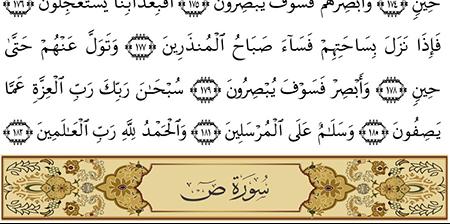 حِينٍ ١٧٤ وَأَبْصِرْهُمْ فَسَوْفَ يُبْصِرُونَ ١٧٥ أَفَبِعَذَابِنَا يَسْتَعْجِلُونَ ١٧٦
فَإِذَا نَزَلَ بِسَاحَتِهِمْ فَسَآءَ صَبَاحُ ٱلْمُنذَرِينَ ١٧٧ وَتَوَلَّ عَنْهُمْ حَتَّىٰ
حِينٍ ١٧٨ وَأَبْصِرْ فَسَوْفَ يُبْصِرُونَ ١٧٩ سُبْحَٰنَ رَبِّكَ رَبِّ ٱلْعِزَّةِ عَمَّا
يَصِفُونَ ١٨٠ وَسَلَٰمٌ عَلَى ٱلْمُرْسَلِينَ ١٨١ وَٱلْحَمْدُ لِلَّهِ رَبِّ ٱلْعَٰلَمِينَ ١٨٢
سُورَةُ صٓ